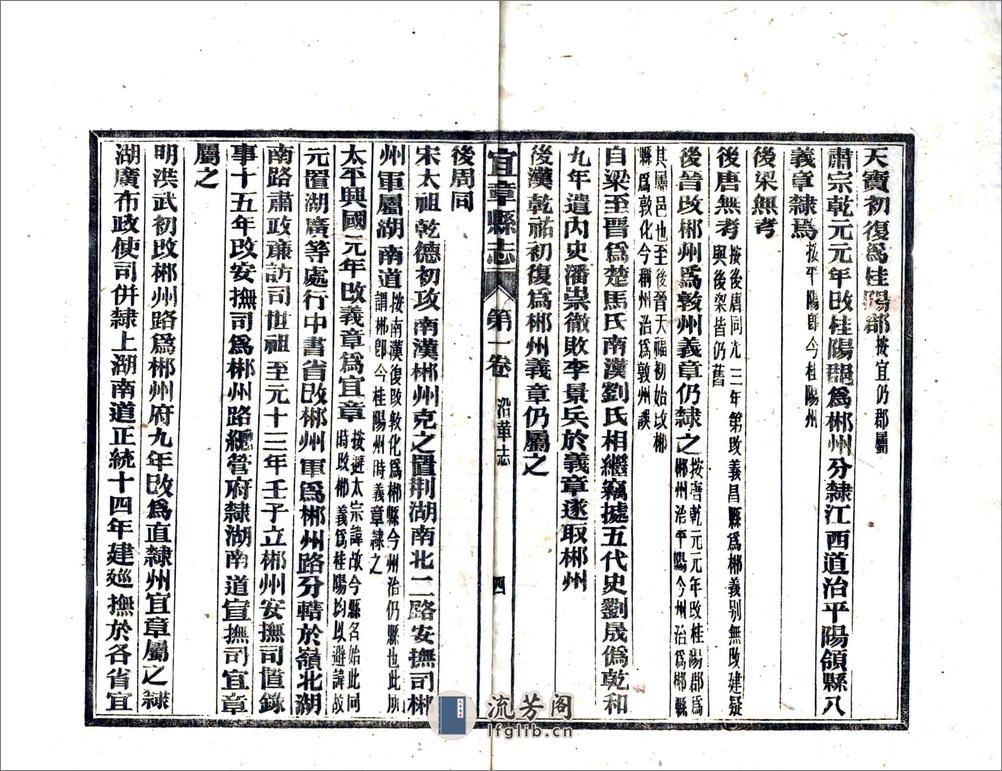 天寶初復爲桂陽郡按宜仍郡屬
肅宗乾元元年改桂陽郡爲郴州分隸江西道治平陽領縣八
義章隸焉按平陽卽今桂陽州
後梁無考
後唐無考按後唐同光三年第改義昌縣爲郴義别無改建疑與後梁皆仍舊
後晉改郴州爲敦州義章仍隸之按唐乾元元年改桂陽郡爲郴州治平陽今州治爲郴縣
其屬邑也至後晉天福初始改郴縣爲敦化今稱州治爲敦州誤
自梁至晉爲楚馬氏南漢劉氏相繼竊據五代史劉晟僞乾和
九年遣內史潘崇徹敗李景兵於義章遂取郴州
後漢乾祐初復爲郴州義章仍屬之
宜章縣志 第一卷 沿革志 四
後周同
宋太祖乾德初攻南漢郴州克之置荆湖南北二路安撫司郴
州軍屬湖南道按南漢後改敦化爲郴縣今州治仍縣也此所謂郴卽今桂陽州時義章隸之
太平興國元年改義章爲宜章按避太宗諱故今縣名始此同時改郴義爲桂陽均以避諱故
元置湖廣等處行中書省改郴州軍爲郴州路分轄於嶺北湖
南路肅政廉訪司世祖至元十三年壬子立郴州安撫司置錄
事十五年改安撫司爲郴州路總管府隸湖南道宣撫司宜章
屬之
明洪武初改郴州路爲郴州府九年改爲直隸州宜章屬之隸
湖廣布政使司併隸上湖南道正統十四年建巡撫於各省宜
流芳阁
lfglib.cn